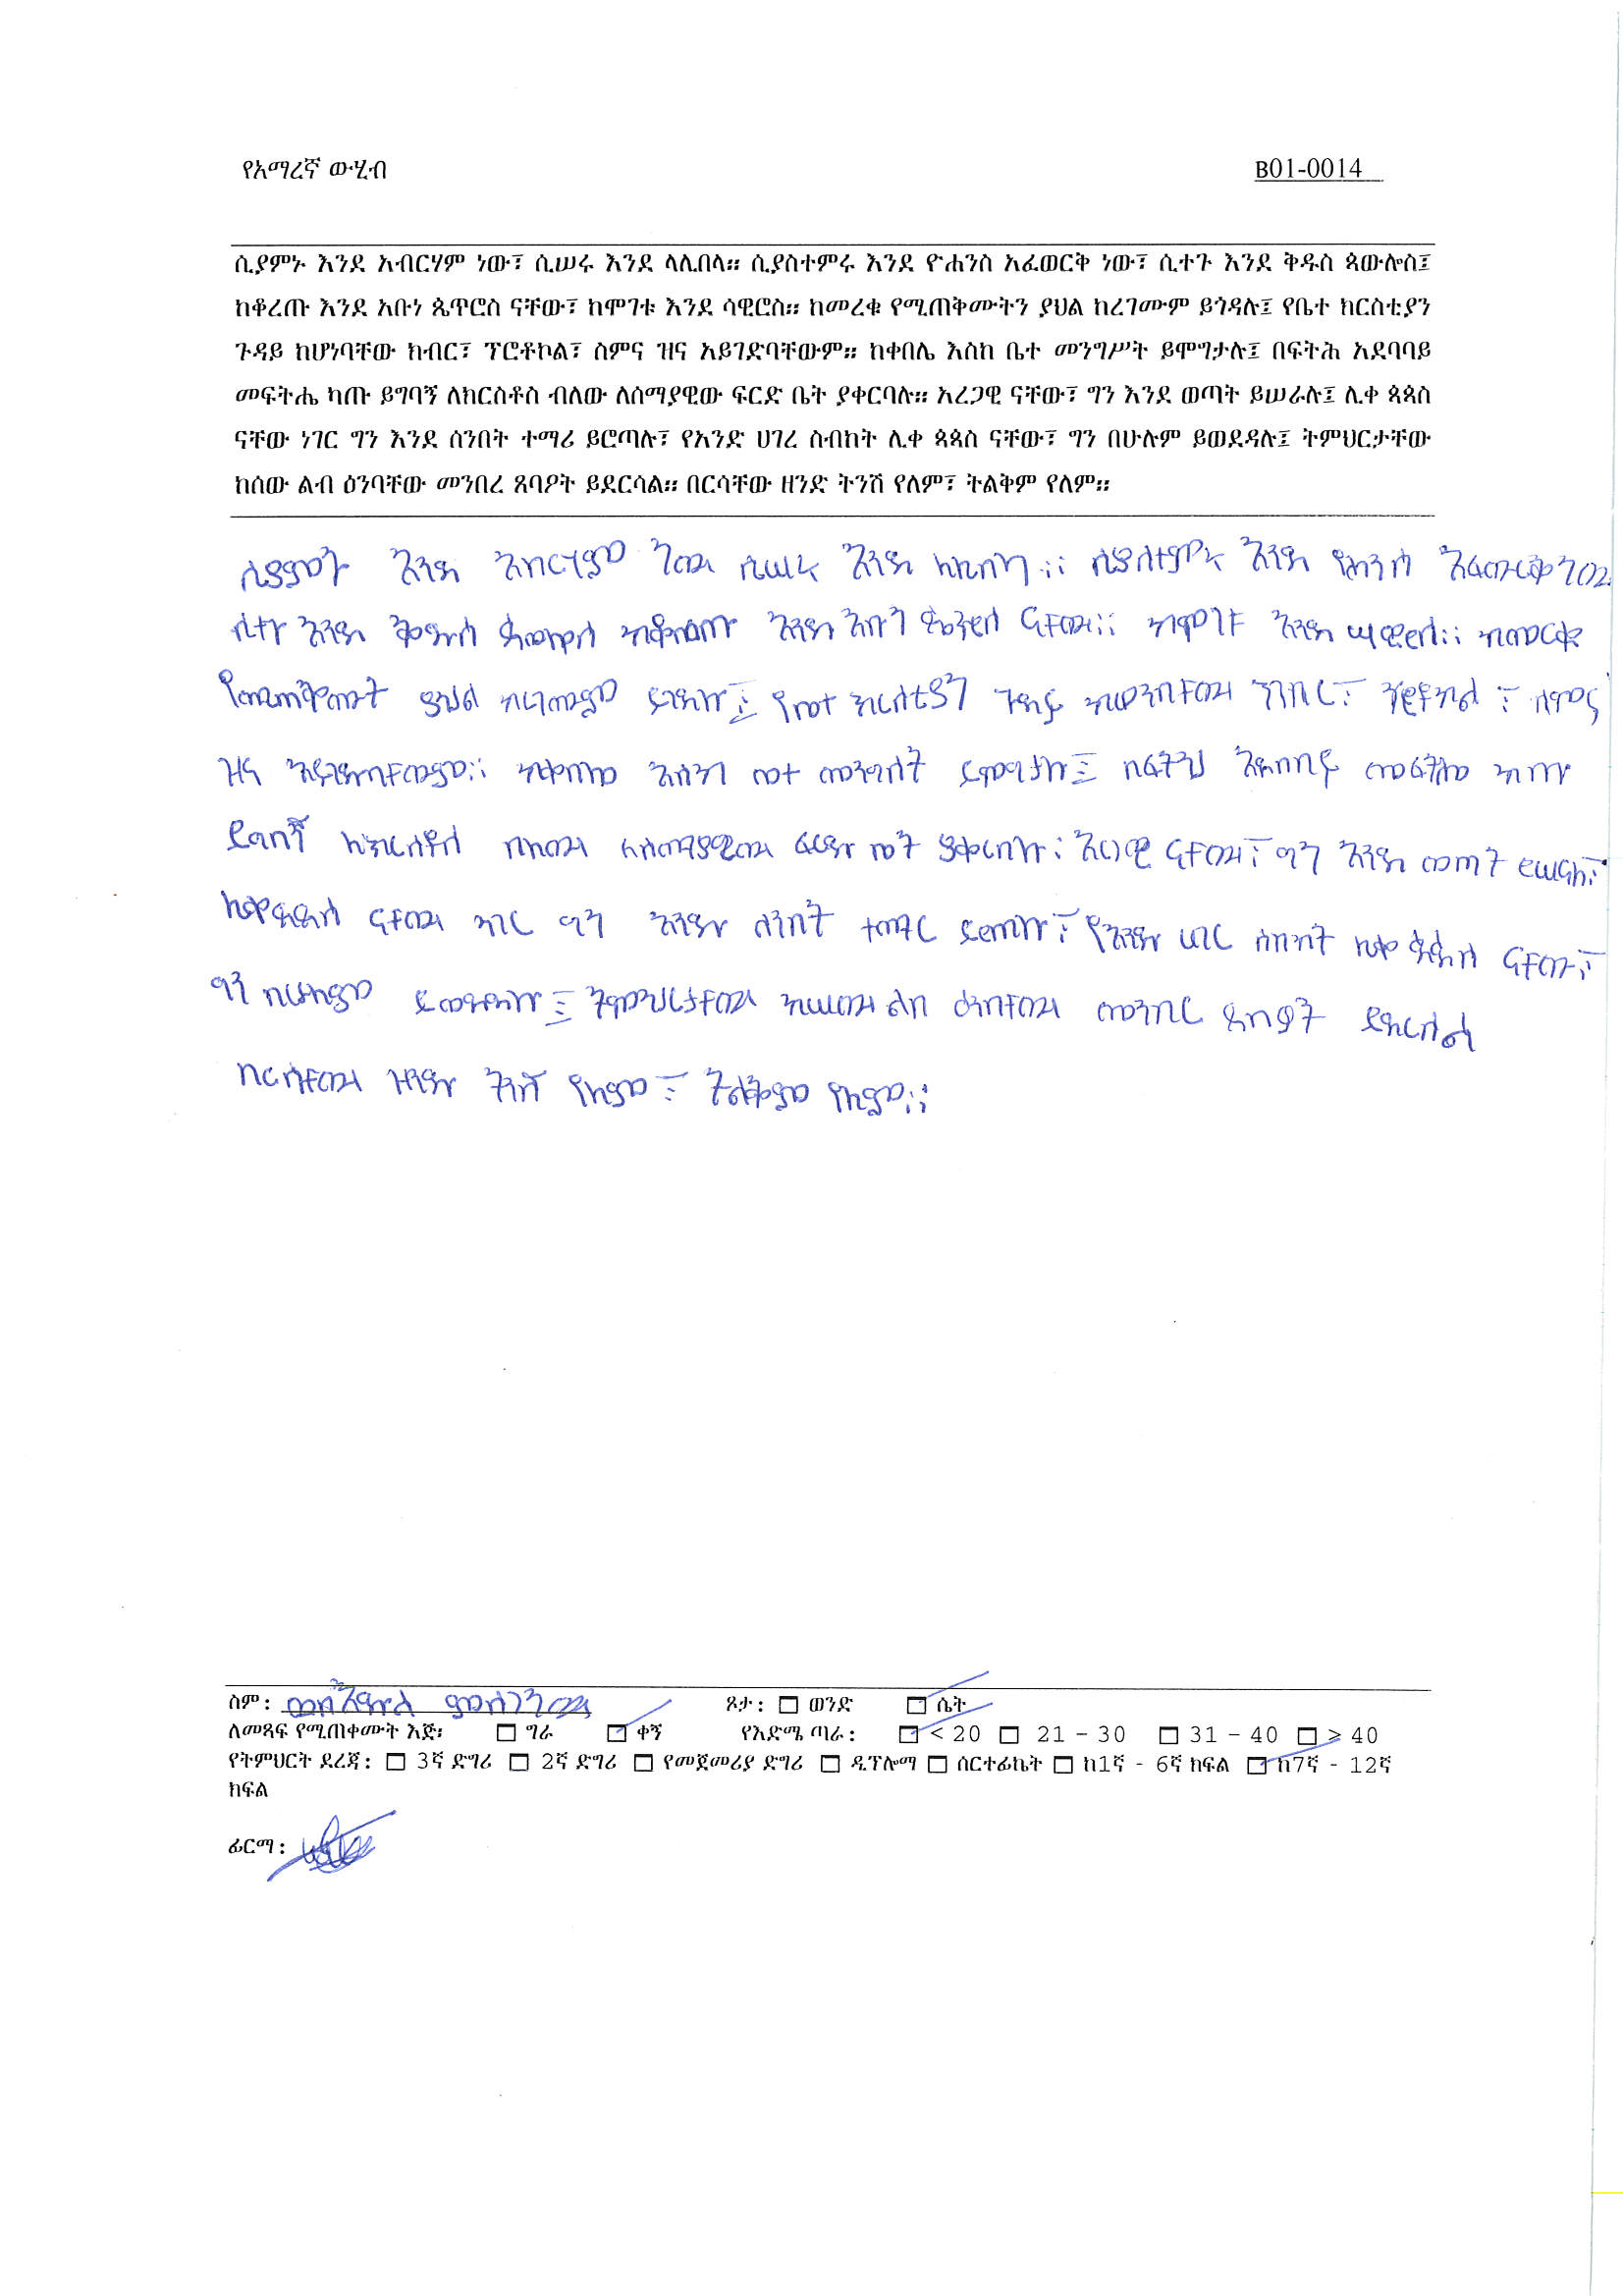 የአማረኛ ውሂብ B01-0014
ሲያምኑ እንደ አብርሃም ነው፣ ሲሠሩ እንደ ላሊበላ። ሲያስተምሩ እንደ ዮሐንስ አፈወርቅ ነው፣ ሲተጉ እንደ ቅዱስ ጳውሎስ፤
ከቆረጡ እንደ አቡነ ጴጥሮስ ናቸው፣ ከሞገቱ እንደ ሳዊሮስ። ከመረቁ የሚጠቅሙትን ያህል ከረገሙም ይጎዳሉ፤ የቤተ ክርስቲያን
ጉዳይ ከሆነባቸው ክብር፣ ፕሮቶኮል፣ ስምና ዝና አይገድባቸውም። ከቀበሌ እስከ ቤተ መንግሥት ይሞግታሉ፤ በፍትሕ አደባባይ
መፍትሔ ካጡ ይግባኝ ለክርስቶስ ብለው ለሰማያዊው ፍርድ ቤት ያቀርባሉ። አረጋዊ ናቸው፣ ግን እንደ ወጣት ይሠራሉ፤ ሊቀ ጳጳስ
ናቸው ነገር ግን እንደ ሰንበት ተማሪ ይሮጣሉ፣ የአንድ ሀገረ ስብከት ሊቀ ጳጳስ ናቸው፣ ግን በሁሉም ይወደዳሉ፤ ትምህርታቸው
ከሰው ልብ ዕንባቸው መንበረ ጸባዖት ይደርሳል። በርሳቸው ዘንድ ትንሽ የለም፣ ትልቅም የለም።
ሲያምኑ እንደ አብርሃም ነው ሲሠሩ እንደ ላሊበላ ።። ሲያስተምሩ እንደ የሐንስ አፈወርቅ ነው
ሲተጉ እንደ ቅዱስ ጳውሎስ ከቆረጡ እንደ አቡነ ጴጥሮስ ናቸው። ከሞገቱ እንደ ሣዊሮስ። ከመርቁ
የሚጠቅሙት ያህል ከረገሙም ይጎዳሉ፤ የቤተ ክርስቲያን ጉዳይ ከሆነባቸው ክብር፣ ፣ ስምና
ዝና አይገድባቸውም። ከቀበሌ እስከ ቤተ መንግስት ይሞግታሉ፤ በፍትህ አደባባይ መፍትሔ ካጡ
ይግባኝ ለክርስቶስ ብለው ለሰማያዊው ፍርድ ቤት ያቀርባሉ፡ አረጋዊ ናቸው፣ ግን እንደ ወጣት ይሠራሉ፣
ሊቀ ጳጳስ ናቸው ነገር ግን እንድ ሰንበት ተማር ይሮጣሉ፣ የአንድ ሀገር ስብከት ሊቀ ጳጳስ ናቸው፣
ግን በሁሉም ይወደዳሉ፤ ትምህርታቸው ከሠው ልብ ዕንባቸው መንበር ጸባዖት ይደርሳል
በርሳቸው ዘንድ ትንሽ የለም ፣ ትልቅም የለም።
ስም: ጾታ: ☐ ወንድ ☐ ሴት
ለመጻፍ የሚጠቀሙት እጅ፡ ☐ ግራ ☐ ቀኝ የእድሜ ጣራ: ☐ < 20 ☐ 21 – 30 ☐ 31 – 40 ☐ > 40
የትምህርት ደረጃ: ☐ 3ኛ ድግሪ ☐ 2ኛ ድግሪ ☐ የመጀመሪያ ድግሪ ☐ ዲፕሎማ ☐ ሰርተፊኬት ☐ ከ1ኛ - 6ኛ ክፍል ☐ ከ7ኛ - 12ኛ
ክፍል
ፊርማ: